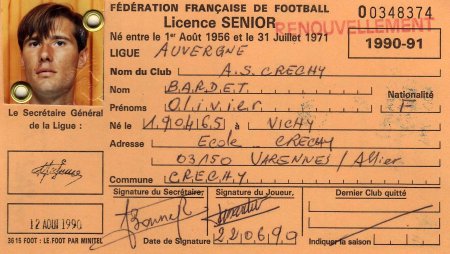 FÉDÉRATION FRANÇAISE DE FOOTBALL
Licence SENIOR
00348374
RENOUVELLEMENT
Né entre le 1er Août 1956 et le 31 Juillet 1971
1990-91
LIGUE AUVERGNE
Nom du Club A.S. CRECHY
Nom BARDET
Nationalité
Prénoms Olivier F
Le Secrétaire Général
de la Ligue :
Né le 190465 à VICHY
Adresse Ecole CRECHY
03150 VARENNES / Allier
Commune CRECHY
Signature du Secrétaire,
Signature du Joueur,
Dernier Club quitté
12 AOUT 1990
Date de Signature 220690
Indiquer la saison
3615 FOOT : LE FOOT PAR MINITEL